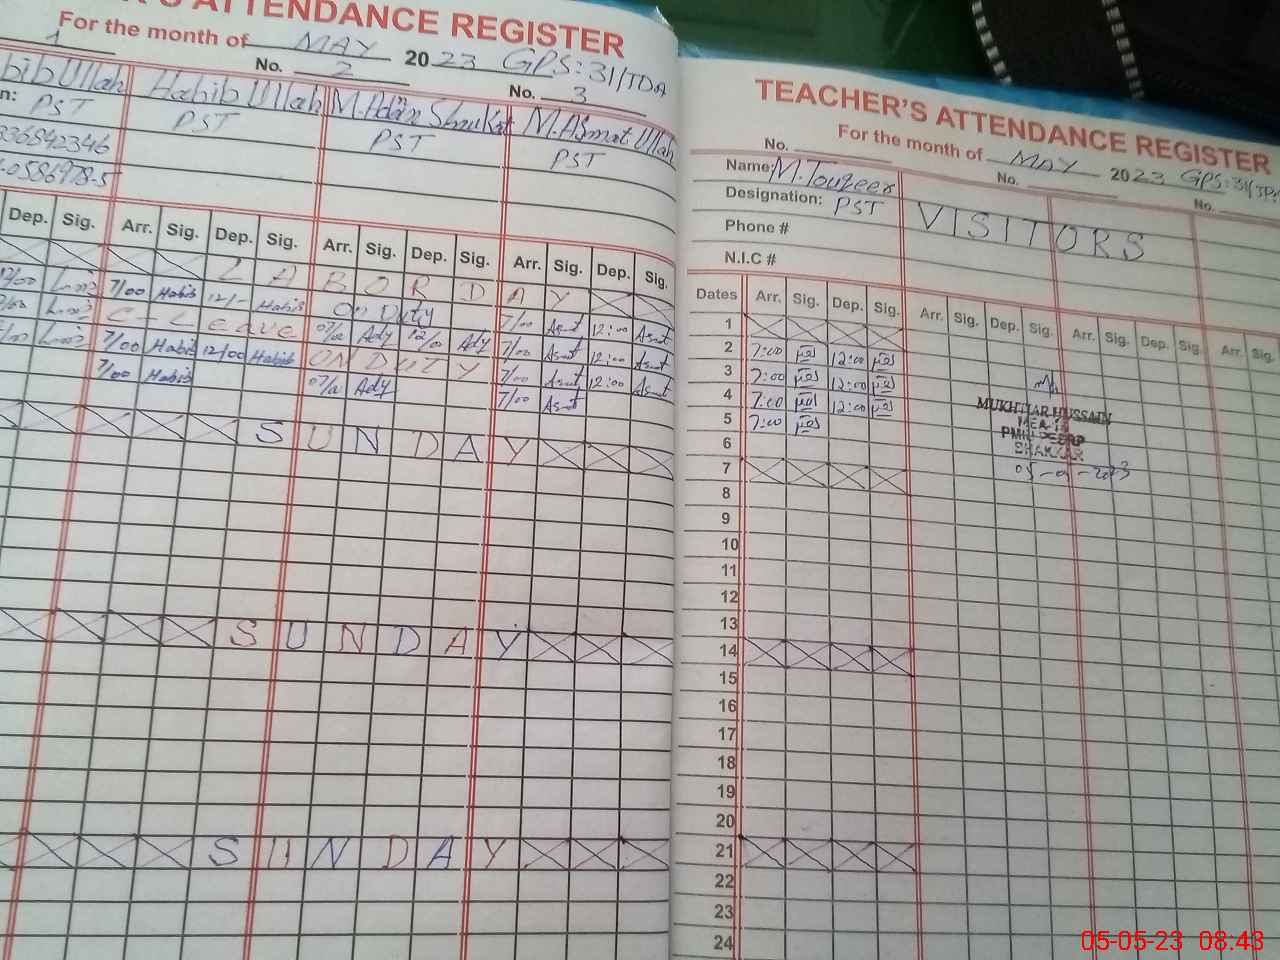 'S ATTENDANCE REGISTER
For the month of MAY 2023 GPS:31/TDA
1 No. 2 No. 3
bib Ullah Habib Ullah M. Adnan Shaukat M. Asmat Ullah
n: PST PST PST PST
336842346
-0586978-5
Dep. Sig. Arr. Sig. Dep. Sig. Arr. Sig. Dep. Sig. Arr. Sig. Dep. Sig.
LABOR DAY
12/00 7/00 Habib 12/- Habib On Duty 7/00 Asmt 12:00 Asmt
C-Leave Ady Ady 7/00 Asmt 12:00 Asmt
7/00 Habib 12/00 Habib ON DUTY 7/00 Asmt 12:00 Asmt
7/00 Habib Ady 7/00 Asmt
SUNDAY
SUNDAY
SUNDAY
TEACHER'S ATTENDANCE REGISTER
For the month of MAY 2023 GPS:31/TDA
No. No. No.
Name: M. Touqeer VISITORS
Designation: PST
Phone #
N.I.C #
Dates Arr. Sig. Dep. Sig. Arr. Sig. Dep. Sig. Arr. Sig. Dep. Sig. Arr. Sig.
1
2 7:00 12:00
3 7:00 12:00
4 7:00 12:00
5 7:00
6
7
8
9
10
11
12
13
14
15
16
17
18
19
20
21
22
23
24
MUKHTIAR HUSSAIN
MEA
BHAKKAR
05-05-2023
05-05-23 08:43